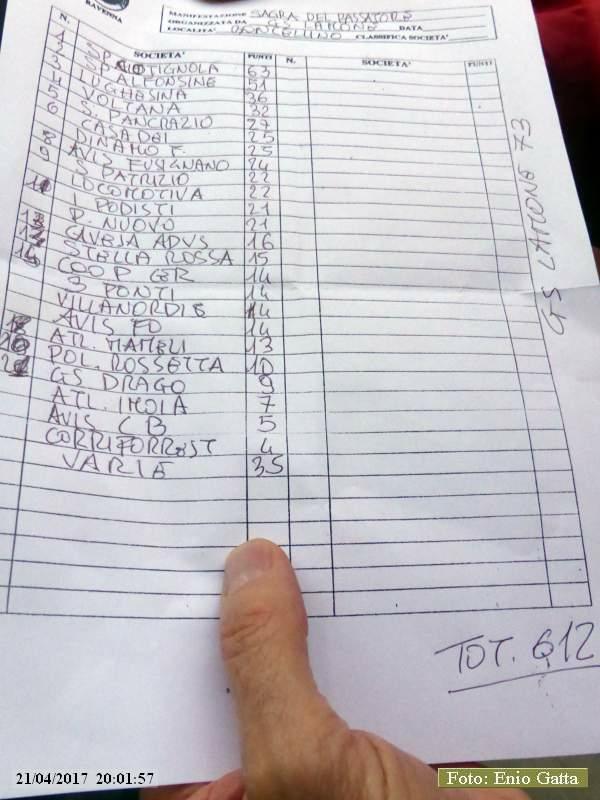 RAVENNA
MANIFESTAZIONE SAGRA DEL PASSATORE
ORGANIZZATA DA GS LAMONE DATA
LOCALITA' CLASSIFICA SOCIETA'
N. SOCIETA' PUNTI N. SOCIETA' PUNTI
1 COTIGNOLA 63
ALFONSINE 51
LUGHESINA 36
VOLTANA 32
S. PANCRAZIO 27
CASA DEI 25
8 DINAMO F. 25
9 AVIS FUSIGNANO 24
S. PATRIZIO 22
10 LOCOMOTIVA 22
I PODISTI 21
P. NUOVO 21
CAVEJA ADVS 16
STELLA ROSSA 15
COOP CER 14
3 PONTI 14
VILLANORDIE 14
AVIS FO 14
ATL. MAMELI 13
POL. ROSSETTA 10
GS DRAGO 9
ATL. IMOLA 7
AVIS CB 5
CORRIFORREST 4
VARIE 35
GS LAMONE 73
TOT. 612
21/04/2017 20:01:57
Foto: Enio Gatta